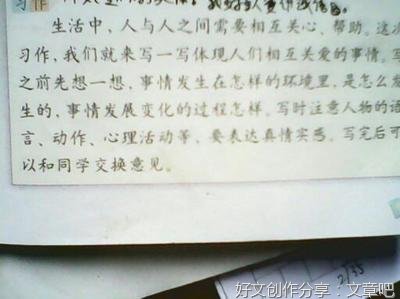 习作
生活中，人与人之间需要相互关心、帮助。这次
习作，我们就来写一写体现人们相互关爱的事情。写
之前先想一想，事情发生在怎样的环境里，是怎么发
生的，事情发展变化的过程怎样。写时注意人物的语
言、动作、心理活动等，要表达真情实感。写完后可
以和同学交换意见。
2/35
好文创作分享·文章吧